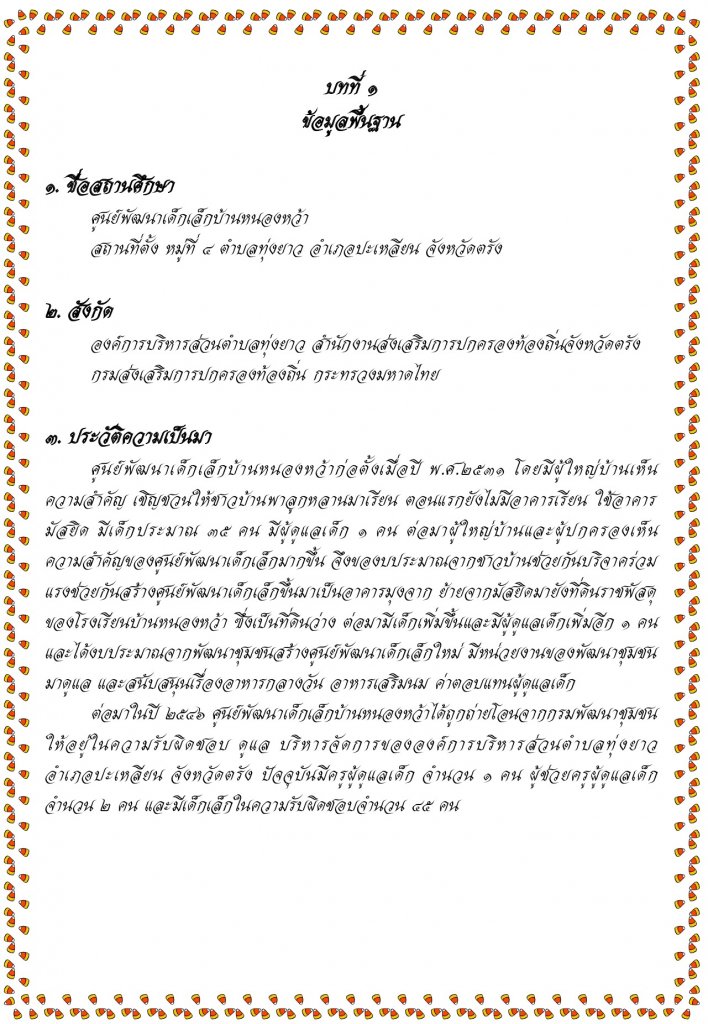 บทที่ ๑
ข้อมูลพื้นฐาน
๑. ชื่อสถานศึกษา
ศูนย์พัฒนาเด็กเล็กบ้านหนองหว้า
สถานที่ตั้ง หมู่ที่ ๔ ตำบลทุ่งยาว อำเภอปะเหลียน จังหวัดตรัง
๒. สังกัด
องค์การบริหารส่วนตำบลทุ่งยาว สำนักงานส่งเสริมการปกครองท้องถิ่นจังหวัดตรัง
กรมส่งเสริมการปกครองท้องถิ่น กระทรวงมหาดไทย
๓. ประวัติความเป็นมา
ศูนย์พัฒนาเด็กเล็กบ้านหนองหว้าก่อตั้งเมื่อปี พ.ศ.๒๕๓๑ โดยมีผู้ใหญ่บ้านเห็น
ความสำคัญ เชิญชวนให้ชาวบ้านพาลูกหลานมาเรียน ตอนแรกยังไม่มีอาคารเรียน ใช้อาคาร
มัสยิด มีเด็กประมาณ ๓๕ คน มีผู้ดูแลเด็ก ๑ คน ต่อมาผู้ใหญ่บ้านและผู้ปกครองเห็น
ความสำคัญของศูนย์พัฒนาเด็กเล็กมากขึ้น จึงของบประมาณจากชาวบ้านช่วยกันบริจาคร่วม
แรงช่วยกันสร้างศูนย์พัฒนาเด็กเล็กขึ้นมาเป็นอาคารมุงจาก ย้ายจากมัสยิดมายังที่ดินราชพัสดุ
ของโรงเรียนบ้านหนองหว้า ซึ่งเป็นที่ดินว่าง ต่อมามีเด็กเพิ่มขึ้นและมีผู้ดูแลเด็กเพิ่มอีก ๑ คน
และได้งบประมาณจากพัฒนาชุมชนสร้างศูนย์พัฒนาเด็กเล็กใหม่ มีหน่วยงานของพัฒนาชุมชน
มาดูแล และสนับสนุนเรื่องอาหารกลางวัน อาหารเสริมนม ค่าตอบแทนผู้ดูแลเด็ก
ต่อมาในปี ๒๕๔๖ ศูนย์พัฒนาเด็กเล็กบ้านหนองหว้าได้ถูกถ่ายโอนจากกรมพัฒนาชุมชน
ให้อยู่ในความรับผิดชอบ ดูแล บริหารจัดการขององค์การบริหารส่วนตำบลทุ่งยาว
อำเภอปะเหลียน จังหวัดตรัง ปัจจุบันมีครูผู้ดูแลเด็ก จำนวน ๑ คน ผู้ช่วยครูผู้ดูแลเด็ก
จำนวน ๒ คน และมีเด็กเล็กในความรับผิดชอบจำนวน ๔๕ คน